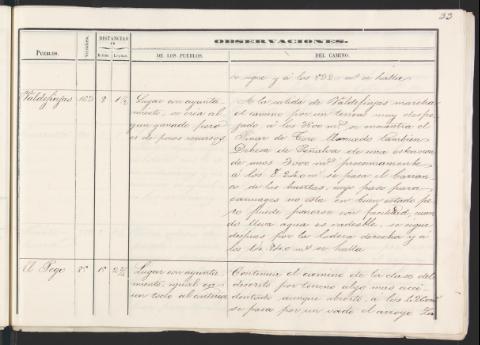 33
OBSERVACIONES.
DISTANCIAS
PUEBLOS.
Vecinos.
Horas.
Leguas.
DE LOS PUEBLOS.
DEL CAMINO.
se sigue y á los 832 m.s se halla
Valdefinjas
2
1½
Lugar con ayunta-
miento, se crea al-
gun ganado pero
es de pocos recursos
A la salida de Valdefinjas marcha
el camino por un terreno muy despe-
jado á los 3500 m.s se encuentra el
Pinar de Toro llamado tambien
Dehesa de Peñalva de una estension
de unos 3000 m.s proximamente
á los 8.240 m se pasa el barran-
co de las huertas, cuyo paso para
carruages no esta en buen estado pe-
ro puede pasarse con facilidad, cuan-
do lleva agua es vadeable, se sigue
despues por la ladera derecha y á
los m.s se halla
El Pego
Lugar con ayunta-
miento, igual en
un todo al anterior
Continua el camino de la clase del
descrito por terreno algo mas acci-
dentado aunque abierto, á los
se pasa por un vado el arroyo